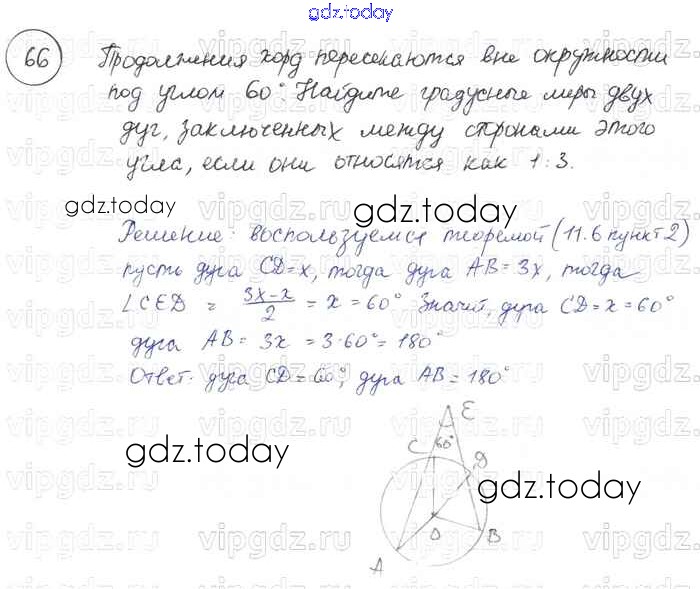 gdz.today
66 Продолжения хорд пересекаются вне окружности
под углом 60°. Найдите градусные меры двух
дуг, заключенных между сторонами этого
угла, если они относятся как 1:3.
gdz.today
gdz.today
Решение: воспользуемся теоремой (11.6 пункт 2)
пусть дуга CD=x, тогда дуга AB=3x, тогда
∠CED = (3x-x)/2 = x = 60° Значит, дуга CD=x=60°
дуга AB= 3x = 3·60°=180°
Ответ: дуга CD=60°, дуга AB=180°
E
C 60° D
gdz.today
gdz.today
O
B
A
vipgdz.ru